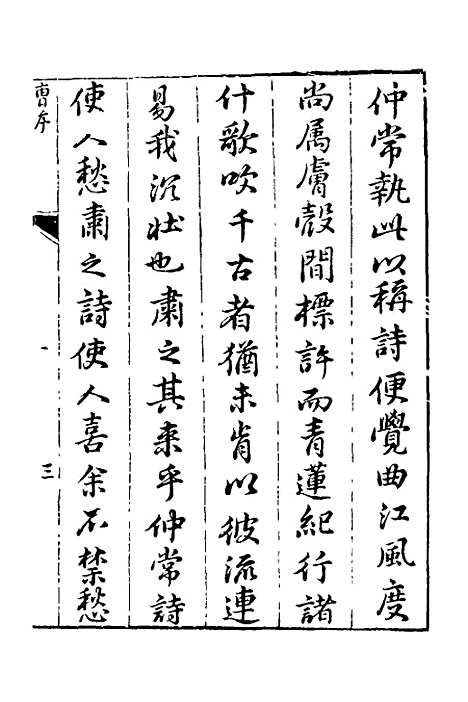 仲常執此以稱詩便覺曲江風度
尚屬膚殼間標許而青蓮紀行諸
什歌吹千古者猶未肯以彼流連
易我沉壯也肅之其來乎仲常詩
使人愁肅之詩使人喜余不禁愁
曹序
一
三